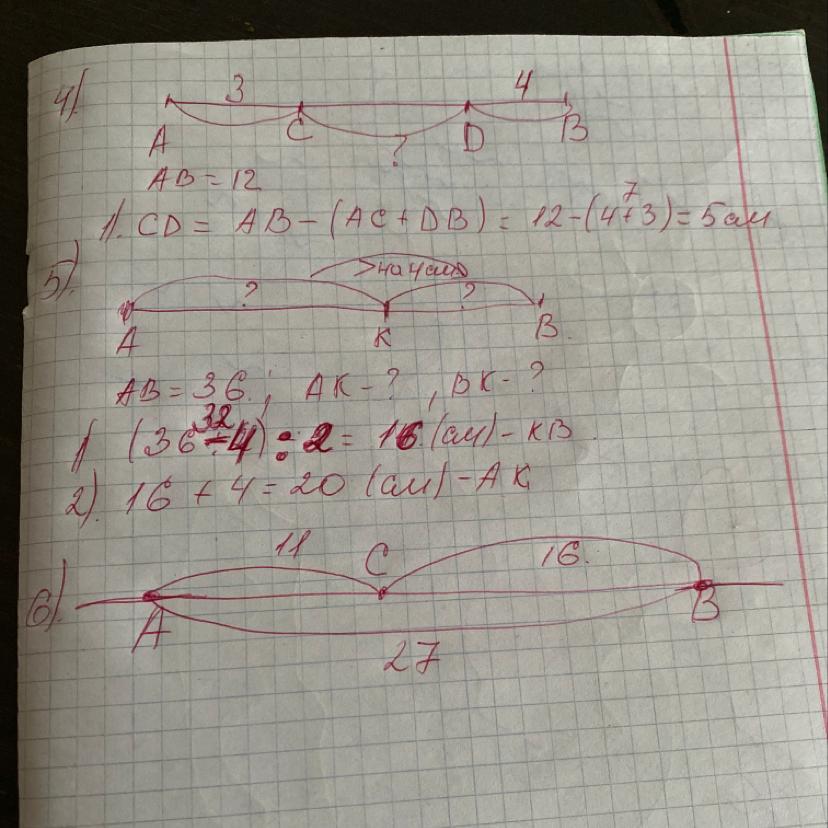 4). 3 4
A C ? D B
AB = 12
1). CD = AB - (AC + DB) = 12 - (4 + 3) = 5 см
7
5). > на 4 см
? ?
A K B.
AB = 36.; AK - ?, BK - ?
32
1) (36 - 4) : 2 = 16 (см) - KB.
2). 16 + 4 = 20 (см) - AK
11 C 16.
6). A B
27